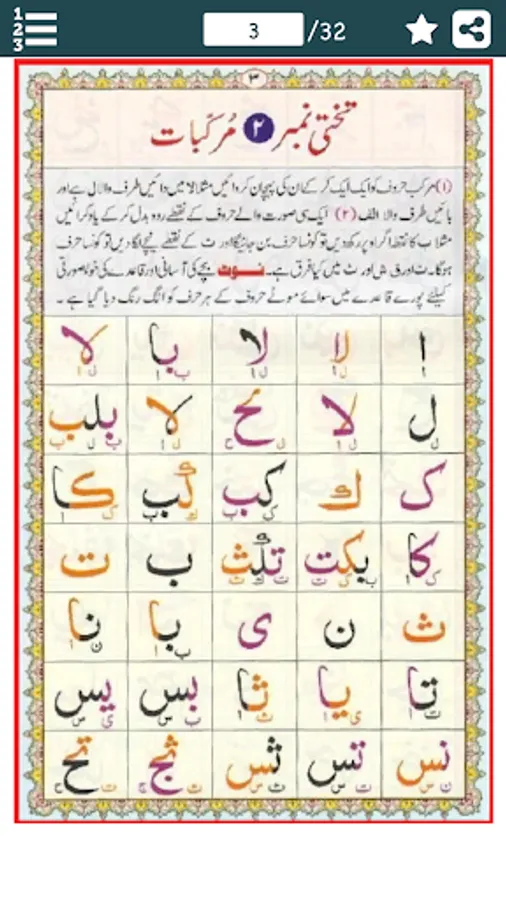 1 2 3
3 /32
۳
تختی نمبر ۲ مرکبات
(۱) مرکب حروف کو ایک ایک کر کے ان کی پہچان کروائیں مثلا لا میں دائیں طرف والا ل ہے اور
بائیں طرف والا الف (۲) ایک ہی صورت والے حروف کے نقطے ردو بدل کر کے یاد کرائیں
مثلا ب کا نقطہ اگر اوپر رکھ دیں تو کونسا حرف بن جائیگا اور ت کے نقطے نیچے لگا دیں تو کونسا حرف
ہوگا۔ ث اور میں کیا فرق ہے۔ نوٹ بچے کی آسانی اور قاعدے کی خوبصورتی
کیلئے پورے قاعدے میں سوائے موٹے حروف کے ہر حرف کو الگ رنگ دیا گیا ہے ۔
ا لا لا با لا
ل لا لح لا بلب
ک ك کب كب کا
کا بکت تلث ب ت
ث ن ی با نا
تا یا ثا بس یس
نس تس ثس ثج تح